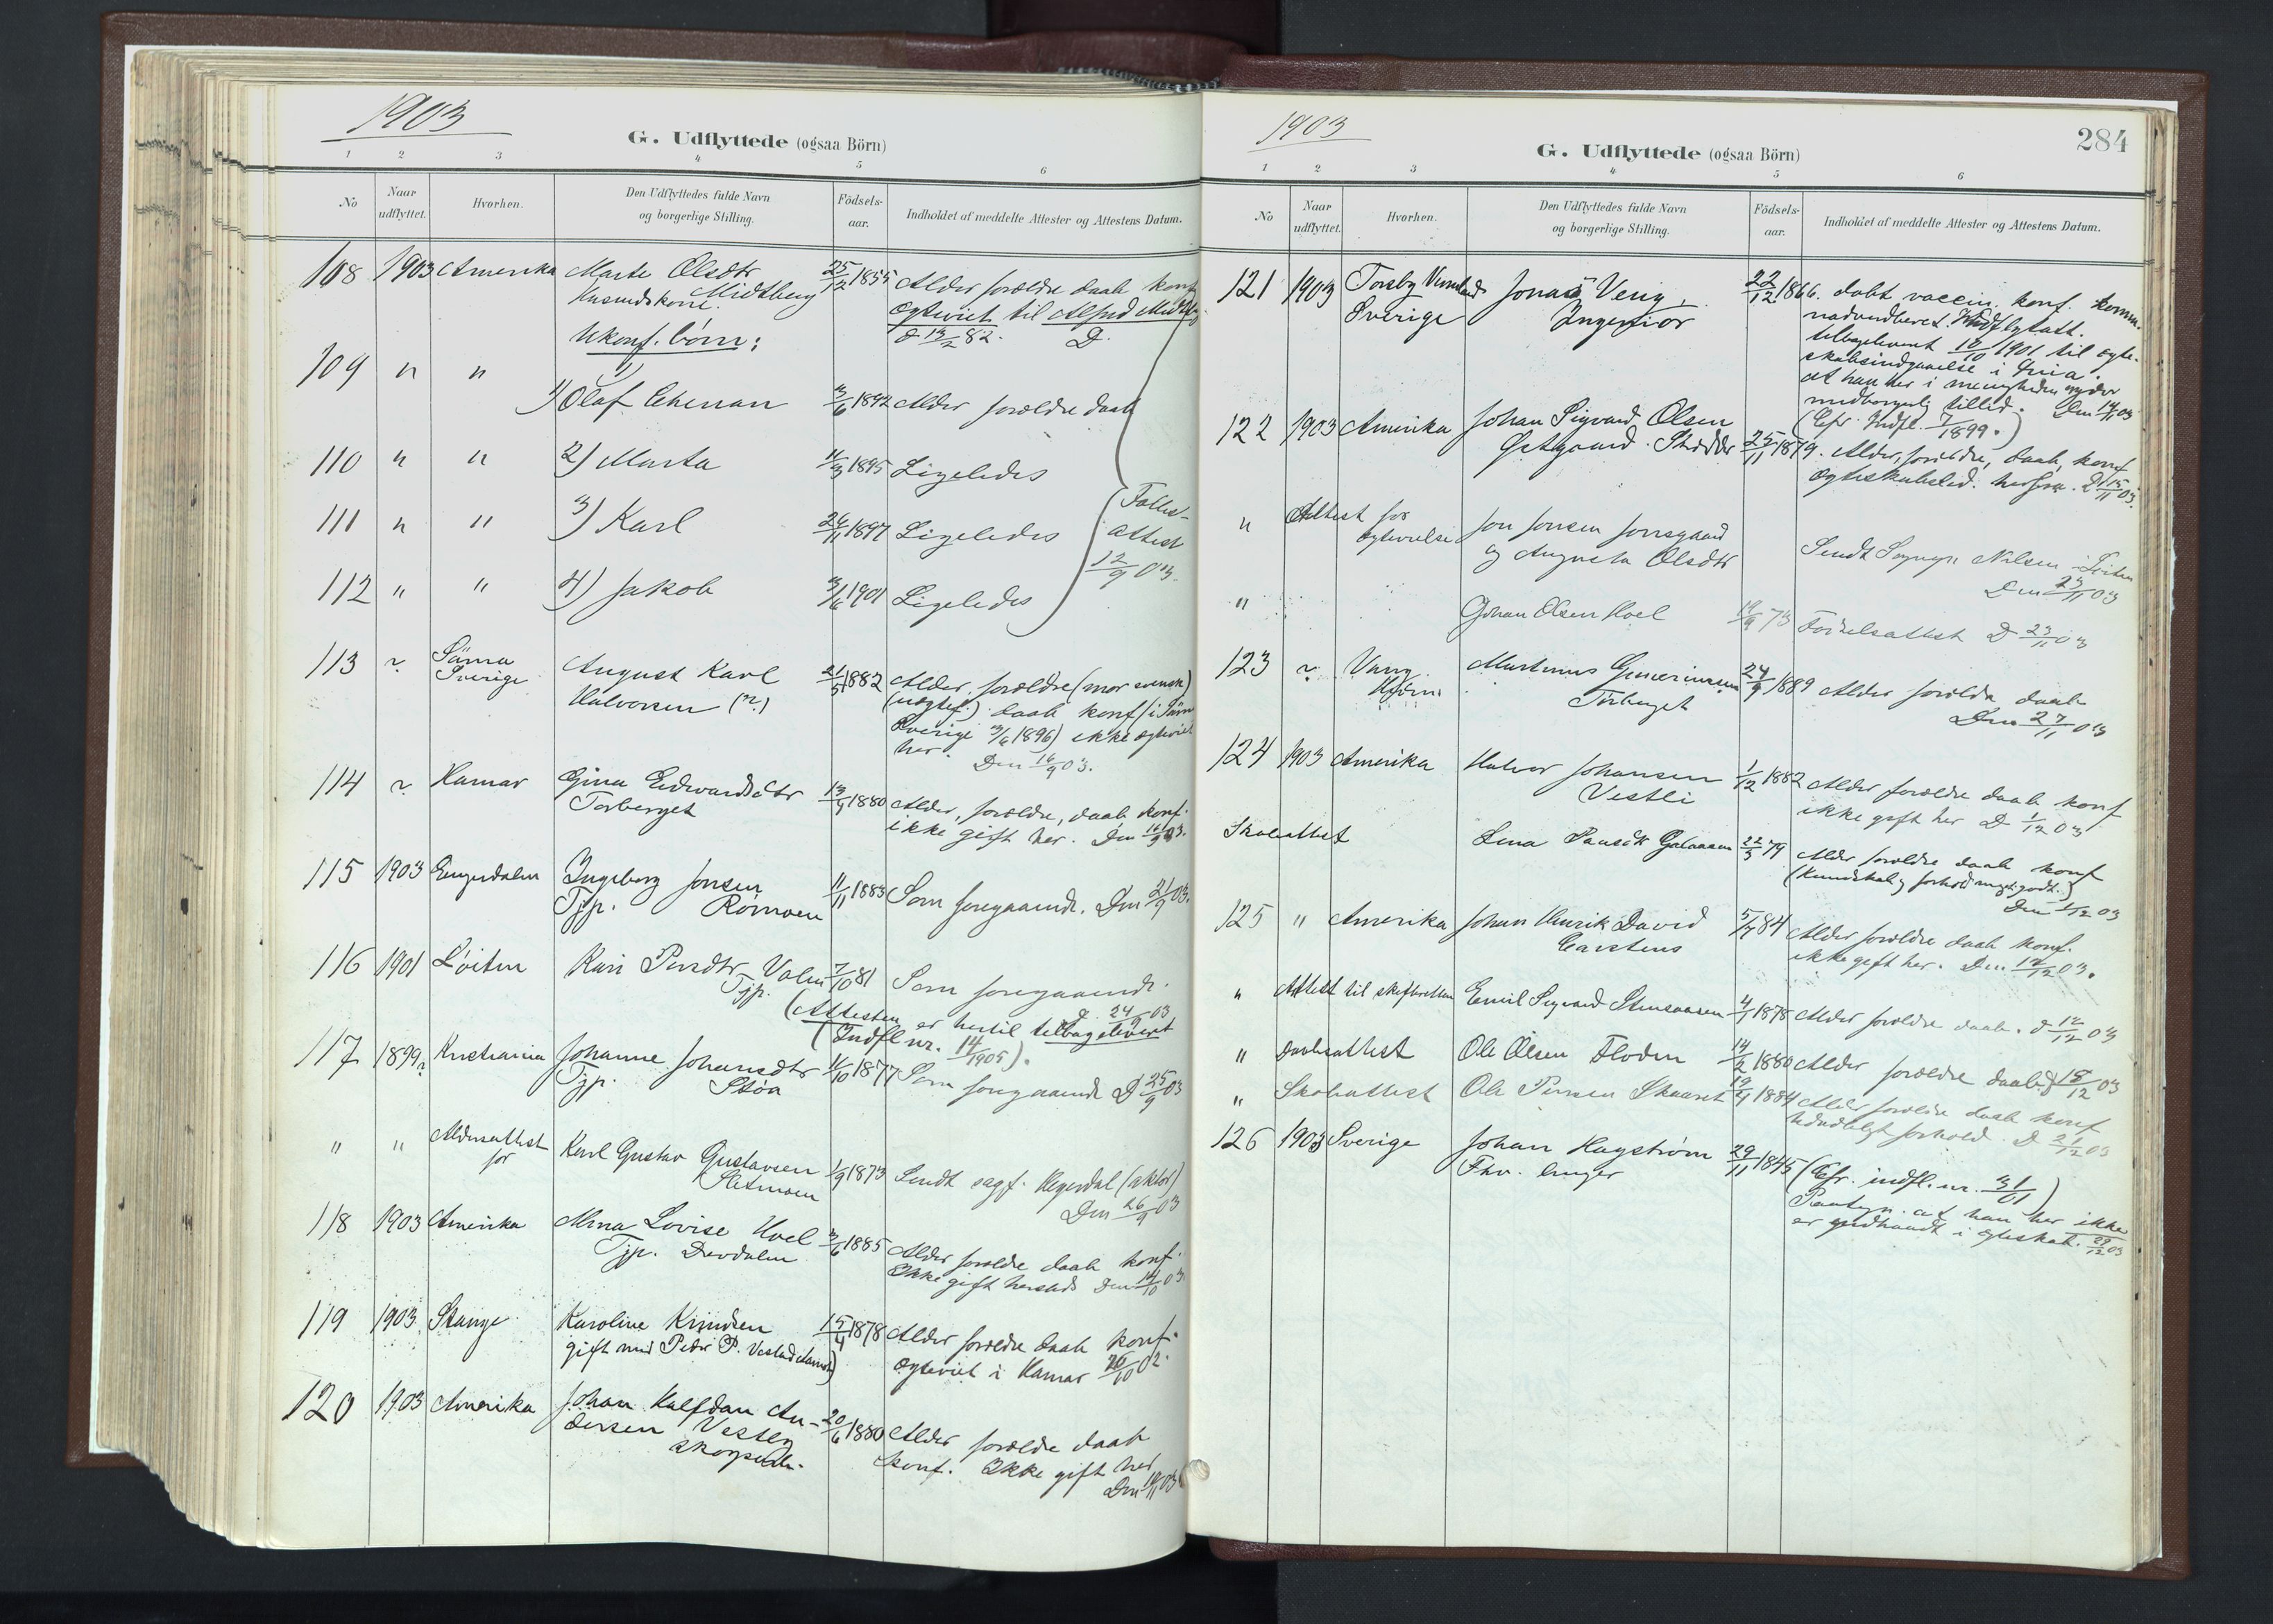 1903
G. Udflyttede (ogsaa Börn)
1 2 3 4 5 6
No
Naar udflyttet.
Hvorhen.
Den Udflyttedes fulde Navn
og borgerlige Stilling.
Födsels-
aar.
Indholdet af meddelte Attester og Attestens Datum.
108 1903 Amerika Marte Olsdtr 25/12 1855 Alder forældre daab konf
Midtberg
ægteviet til Alfred
d. 82. D.
Ukonf. børn:
109 " " 1) Olaf 1892 Alder forældre daab
110 " " 2) Marta 1895 Ligeledes
111 " " 3) Karl 1897 Ligeledes
112 " " 4) Jakob 1901 Ligeledes
Fælles-
attest
12/9 03.
113 Särna
Sverige
August Karl
Halvorsen (?)
1882 Alder, forældre (mor svensk)
(uægtef.) daab konf (i Särna
Sverige 1896) ikke ægteviet
her. Den 16/9 03.
114 Hamar Gina Edvardsdtr
Torberget
1880 Alder, forældre, daab konf.
ikke gift her. Den 16/9 03.
115 1903 Engerdalen Ingeborg Jonsen
Tjp. Rømoen
11/11 1883 Som foregaaende. Den 21/9 03.
116 1901 Løiten Kari Persdtr
Tjp.
7/10 81 Som foregaaende.
D. 24/9 03
(Attesten er hertil tilbageleveret
(Indfl nr. 14/1905).
117 1899 Kristiania Johanne Johansdtr
Tjp. Støa
1877 Som foregaaende D 25/9 03
" " Aldersattest
for
Karl Gustav Gustavsen
Sletmoen
1/9 1873 Sendt sagf. Hegerdal (aktor)
Den 26/9 03
118 1903 Amerika Lovise Hoel
Tjp.
3/6 1885 Alder forældre daab konf.
Ikke gift hersteds Den
119 1903 Stange Karoline Knudsen
gift med Peder P.
15/4 1878 Alder forældre daab konf.
ægteviet i Hamar
120 1903 Amerika Johan Halfdan An-
dersen
20/6 1880 Alder forældre daab
konf. Ikke gift her
Den
1903
284
G. Udflyttede (ogsaa Börn)
1 2 3 4 5 6
No
Naar udflyttet.
Hvorhen.
Den Udflyttedes fulde Navn
og borgerlige Stilling.
Födsels-
aar.
Indholdet af meddelte Attester og Attestens Datum.
121 1903 Torsby
Sverige
Jonas Veng,
Ingeniør
22/12 1866. døbt vaccin. konf.
tilbageleveret 1901 til ægte-
skabsindgaaelse i
at han her i menigheden nyder
medborgerlig tillid. Den
(Cfr. Indfl. 7/1899.)
122 1903 Amerika Johan Sigvard Olsen
Østgaard.
25/11 1879. Alder, forældre, daab, konf
ægteskabsled. herfra. D 15/11 03.
" Attest for
ægtevielse
Jon Jonsen Jonsgaard
og Augusta Olsdtr
Sendt Sognepr. Nilsen
Den 23/11 03
" Johan Olsen Hoel 73 Fødselsattest D 23/11 03
123 Vang
Hedm.
Martinus
Torberget
24/9 1889 Alder forældre daab
Den 27/11 03
124 1903 Amerika Halvor Johansen
Vestli
1/12 1882 Alder forældre daab konf
ikke gift her D 1/12 03
Skoleattest Lena Galaasen 22/3 79 Alder forældre daab konf
(Kundskab, forhold meget godt.)
Den 1/12 03
125 " Amerika Johan Henrik David
Carstens
84 Alder forældre daab konf.
ikke gift her. Den 03.
" Attest til skifteretten Emil Sigvard Stensaasen 1878 Alder forældre daab. d 12/12 03
" Daabsattest Ole Olsen Floden 1880 Alder forældre daab d 18/12 03
" Skoleattest Ole Persen Skaaret 1884 Alder forældre daab konf
forhold. D 21/12 03
126 1903 Sverige Johan Hagstrøm
Fhv.
29/11 1845 (Cfr. indfl. nr. 31/01)
Pastor. at han her ikke
er indtraadt i ægteskab. 29/12 03